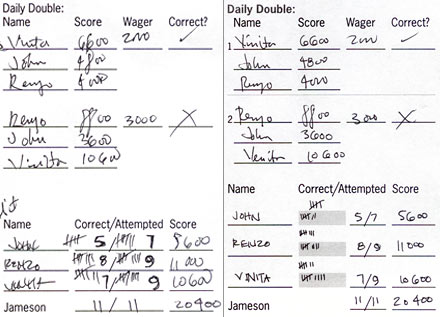 Daily Double:
Name Score Wager Correct?
Vinita 6600 2000 ✓
John 4800
Renzo 4000
Renzo 8800 3000 X
John 3600
Vinita 10600
Name Correct/Attempted Score
JOHN 5/7 5600
RENZO 8/9 11000
VINITA 7/9 10600
Jameson 11/11 20400
Daily Double:
Name Score Wager Correct?
1. Vinita 6600 2000 ✓
John 4800
Renzo 4000
2. Renzo 8800 3000 X
John 3600
Vinita 10600
Name Correct/Attempted Score
JOHN 5/7 5600
RENZO 8/9 11000
VINITA 7/9 10600
Jameson 11/11 20400